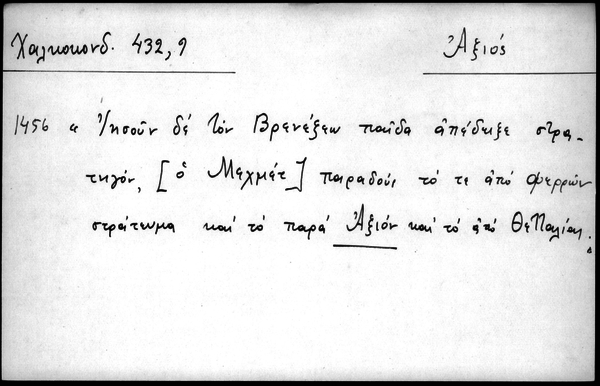 Χαλκοκονδ. 432,9
Ἀξιός
1456 « Ἰησοῦν δέ τόν Βρενέζεω παῖδα ἀπέδειξε στρα-
τηγόν, [ὁ Μεχμέτ] παραδούς τό τε ἀπό Φερρῶν
στράτευμα καί τό παρά Ἀξιόν καί τό ἀπό Θετταλίας